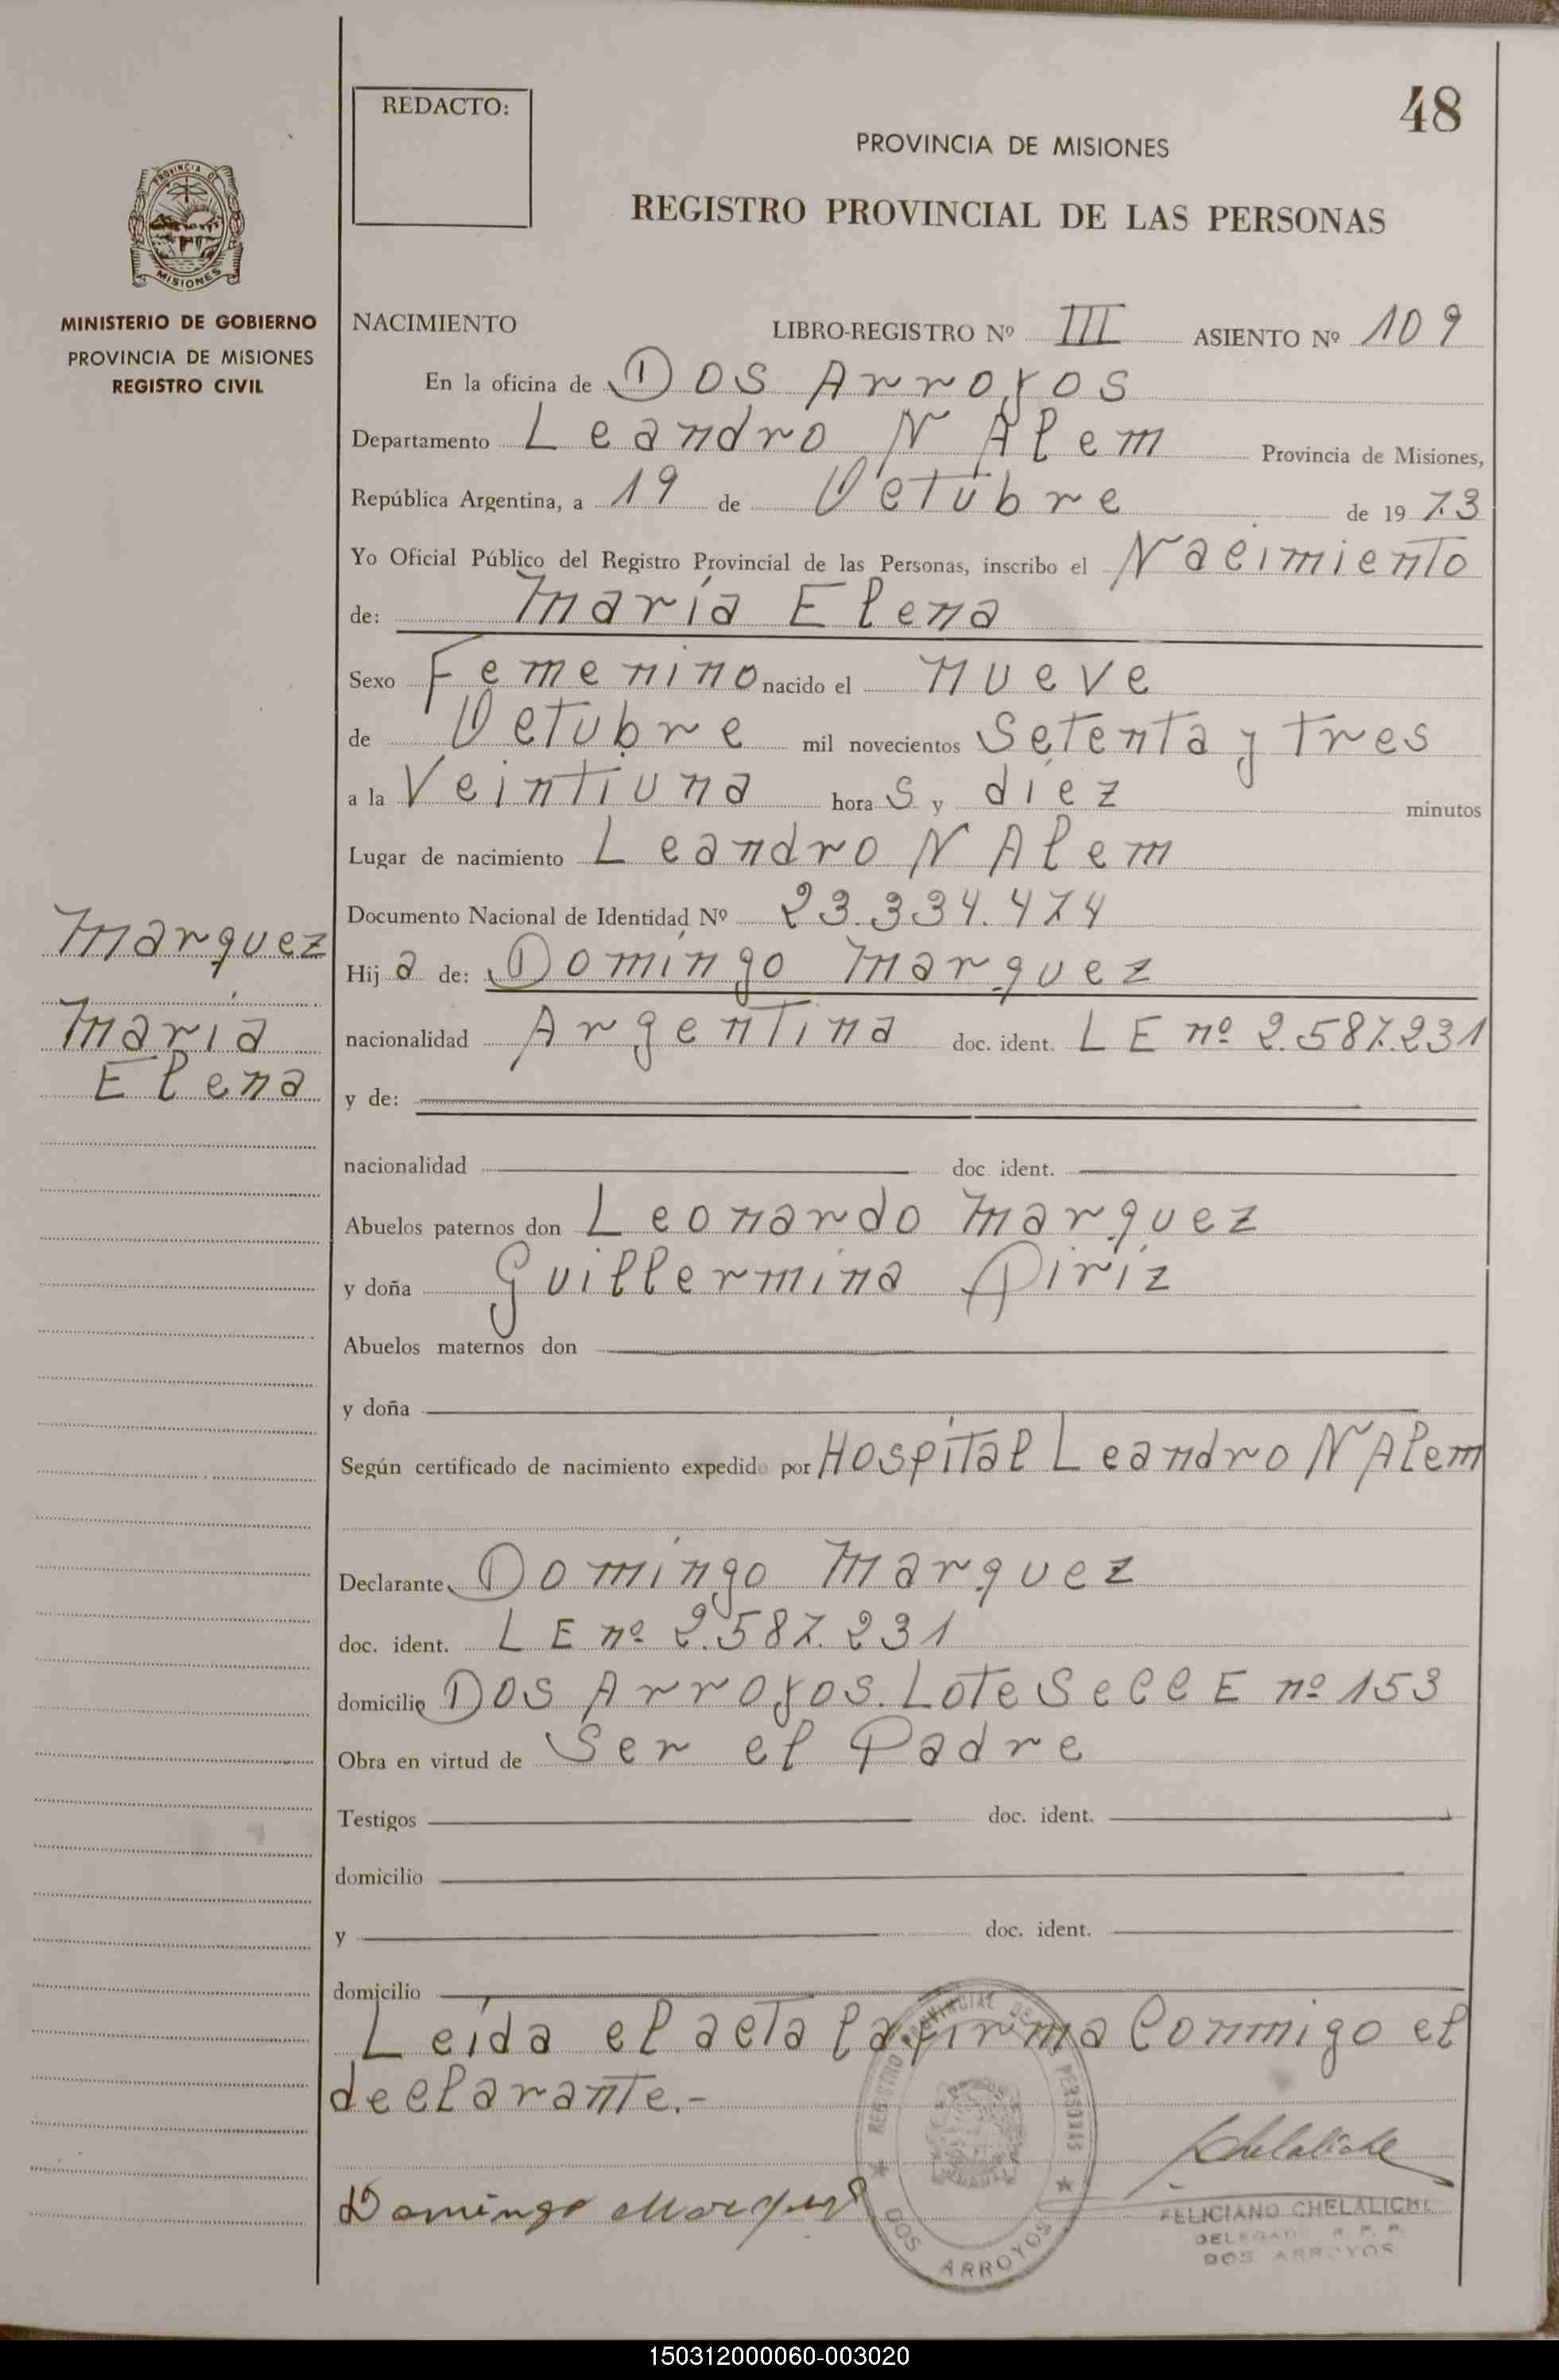 48
REDACTO:
PROVINCIA DE MISIONES
REGISTRO PROVINCIAL DE LAS PERSONAS
PROVINCIA DE
MISIONES
MINISTERIO DE GOBIERNO
PROVINCIA DE MISIONES
REGISTRO CIVIL
NACIMIENTO LIBRO-REGISTRO Nº III ASIENTO Nº 109
En la oficina de Dos Arroyos
Departamento Leandro N Alem Provincia de Misiones,
República Argentina, a 19 de Octubre de 1973
Yo Oficial Público del Registro Provincial de las Personas, inscribo el Nacimiento
de: María Elena
Sexo Femenino nacido el nueve
de Octubre mil novecientos Setenta y tres
a la Veintiuna horas y diez minutos
Lugar de nacimiento Leandro N Alem
Documento Nacional de Identidad Nº 23.334.474
Marquez
María
Elena
Hija de: Domingo Marquez
nacionalidad Argentina doc. ident. L E nº 2.587.231
y de:
nacionalidad doc. ident.
Abuelos paternos don Leonardo Marquez
y doña Guillermina Piriz
Abuelos maternos don
y doña
Según certificado de nacimiento expedido por Hospital Leandro N Alem
Declarante Domingo Marquez
doc. ident. L E nº 2.587.231
domicilio Dos Arroyos. Lote Secc E nº 153
Obra en virtud de Ser el Padre
Testigos doc. ident.
domicilio
y doc. ident.
domicilio
Leída el acta la firma Conmigo el
declarante.-
REGISTRO PROVINCIAL DE PERSONAS
DOS ARROYOS
Domingo Marquez
Chelaliche
FELICIANO CHELALICHE
DELEGADO R. P. P.
DOS ARROYOS
150312000060-003020